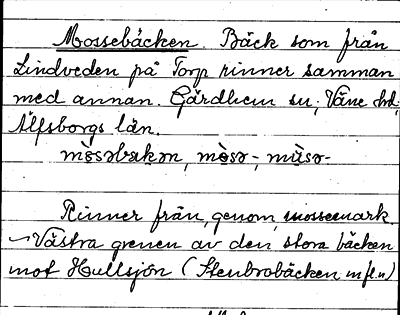 Mossebäcken. Bäck som från
Lindveden på Torp rinner samman
med annan. Gärdhem sn, Väne hd,
Älfsborgs län.
mòsəbækən, mòsə-, mùsə-
Rinner från, genom, mossemark.
Västra grenen av den stora bäcken
mot Hullsjön (Stenbrobäcken m fl n)